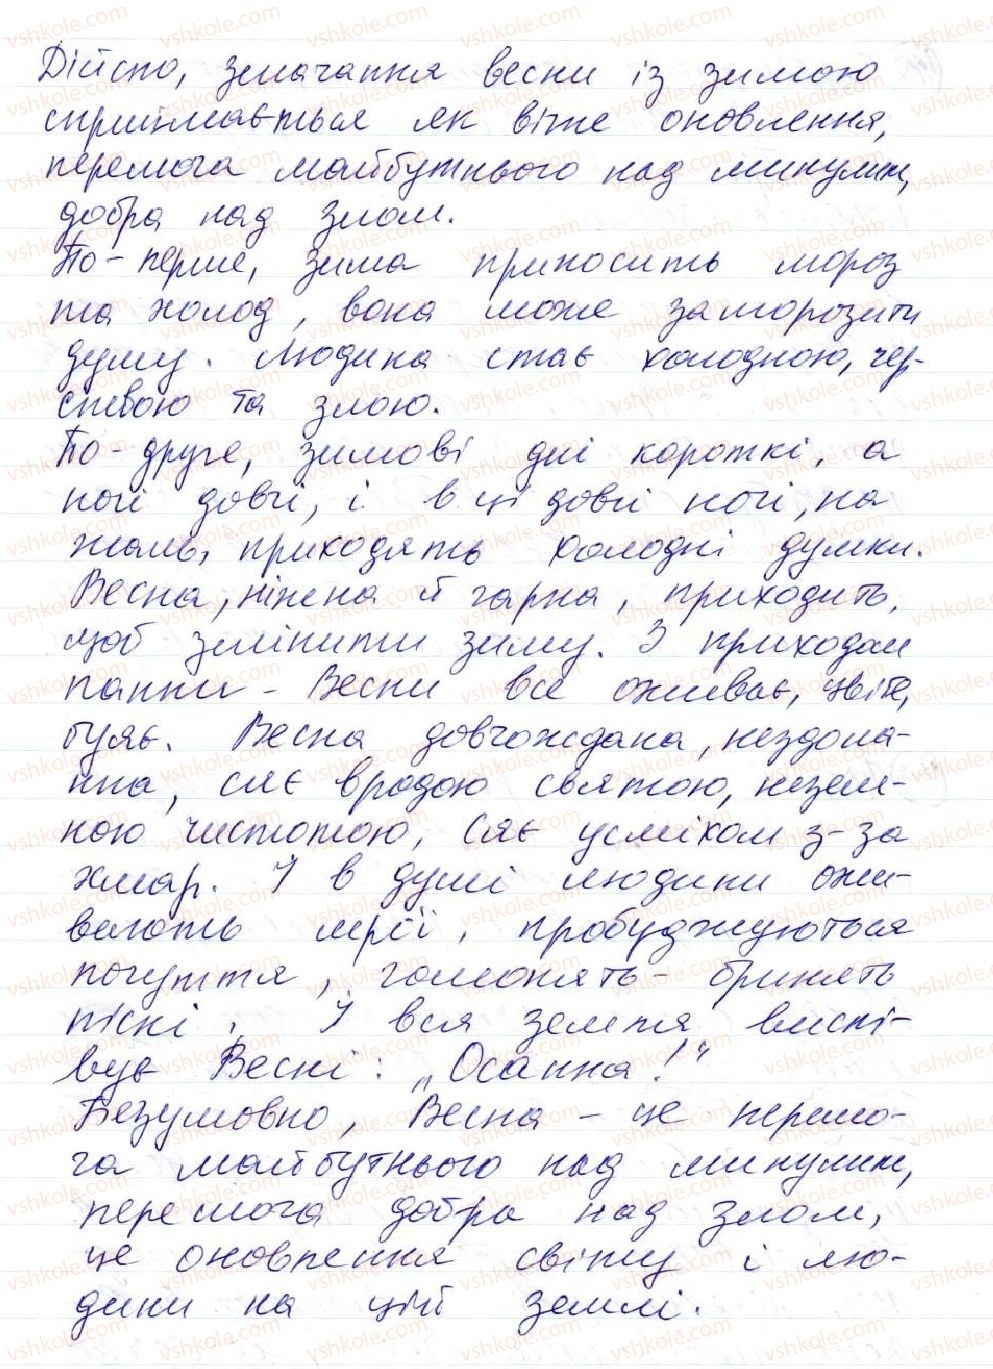 Дійсно, змагання весни із зимою
сприймається як вічне оновлення,
перемога майбутнього над минулим,
добра над злом.
По-перше, зима приносить мороз
та холод, вона може заморозити
душу. Людина стає холодною, чер-
ствою та злою.
По-друге, зимові дні короткі, а
ночі довгі, і в ці довгі ночі, на
жаль, приходять холодні думки.
Весна, ніжна й гарна, приходить,
щоб змінити зиму. З приходом
панни-Весни все оживає, цвіте,
буяє. Весна довгождана, нездола-
нна, сяє вродою святою, незем-
ною чистотою, сяє усміхом з-за
хмар. І в душі людини ожи-
вають мрії, пробуджуються
почуття, гомонять-бринять
пісні. І вся земля виспі-
вує Весні: „Осанна!"
Безумовно, Весна - це перемо-
га майбутнього над минулим,
перемога добра над злом,
це оновлення світу і лю-
дини на цій землі.